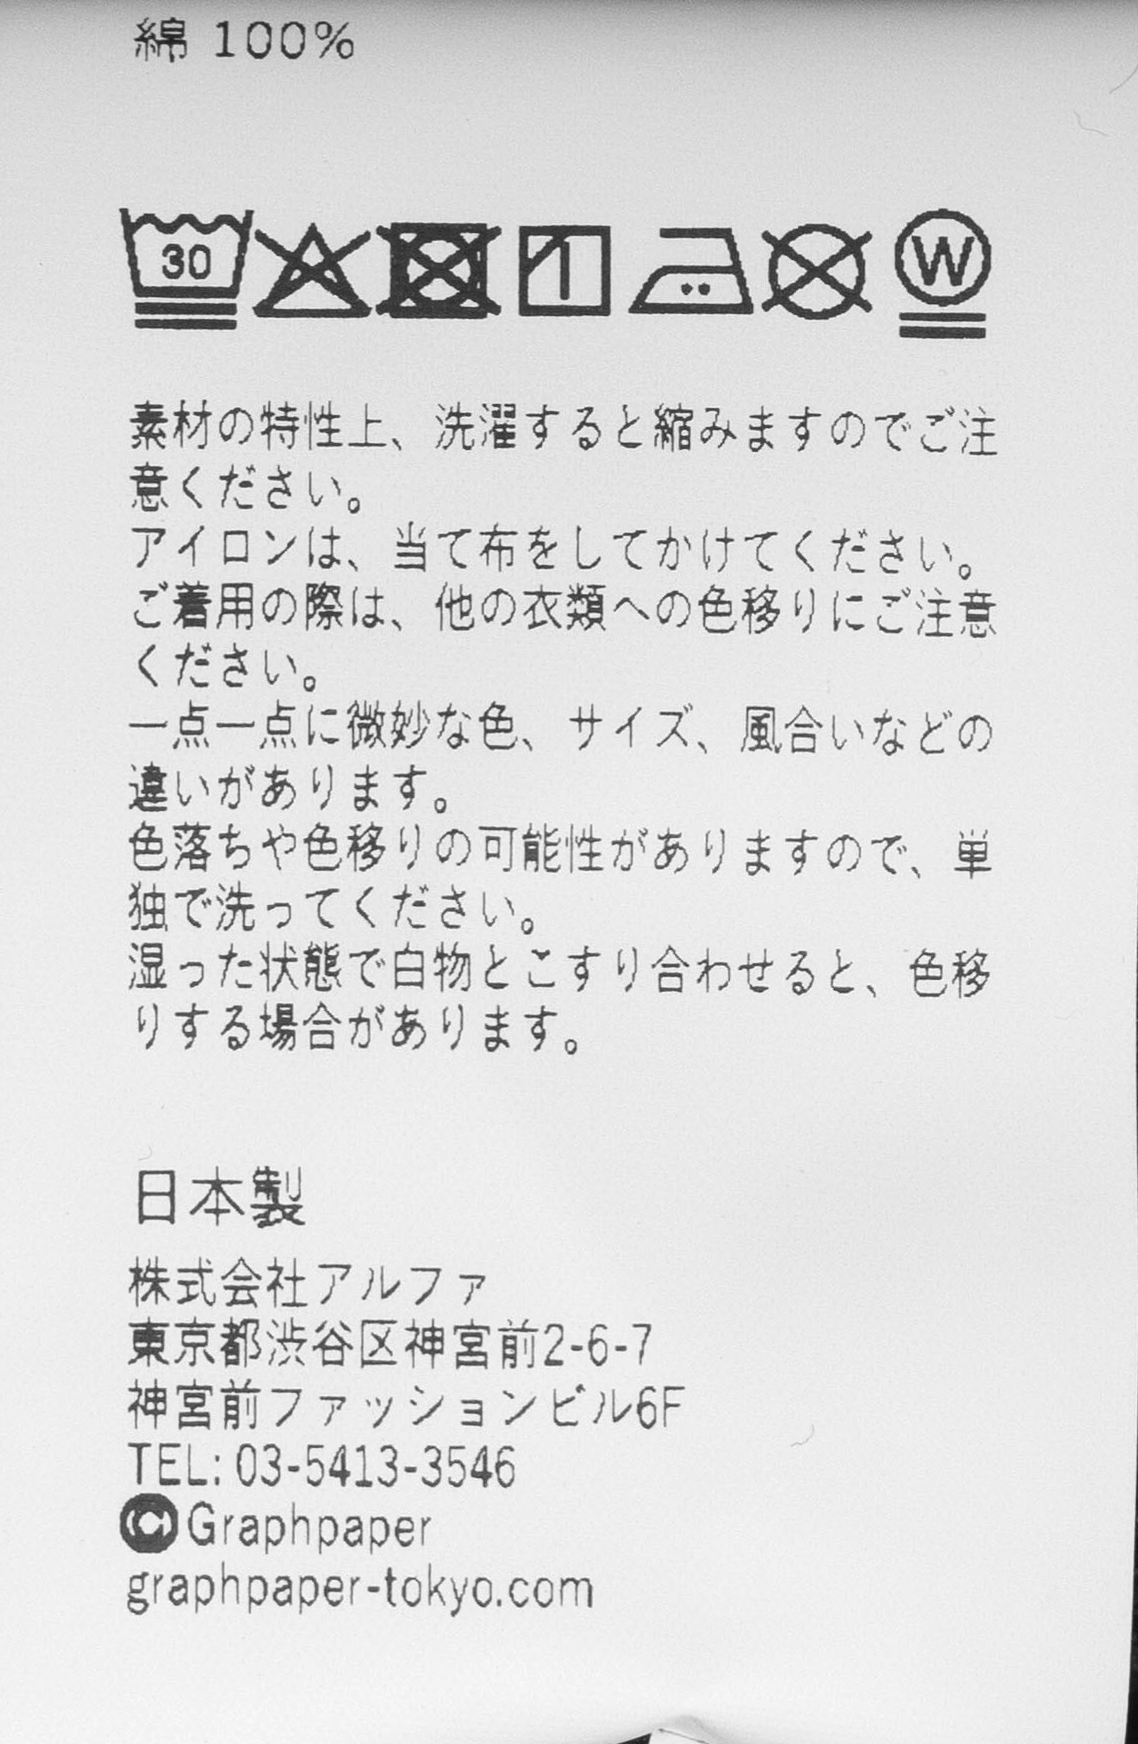 綿 100%
30
W
素材の特性上、洗濯すると縮みますのでご注
意ください。
アイロンは、当て布をしてかけてください。
ご着用の際は、他の衣類への色移りにご注意
ください。
一点一点に微妙な色、サイズ、風合いなどの
違いがあります。
色落ちや色移りの可能性がありますので、単
独で洗ってください。
湿った状態で白物とこすり合わせると、色移
りする場合があります。
日本製
株式会社アルファ
東京都渋谷区神宮前2-6-7
神宮前ファッションビル6F
TEL: 03-5413-3546
©Graphpaper
graphpaper-tokyo.com